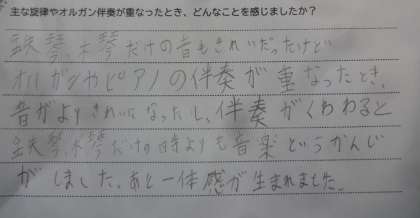 主な旋律やオルガン伴奏が重なったとき、どんなことを感じましたか?
鉄琴、木琴だけの音もきれいだったけど
オルガンやピアノの伴奏が重なったとき、
音がよりきれいになったし、伴奏がくわわると
鉄琴、木琴だけの時よりも音楽というかんじ
がしました。あと一体感が生まれました。